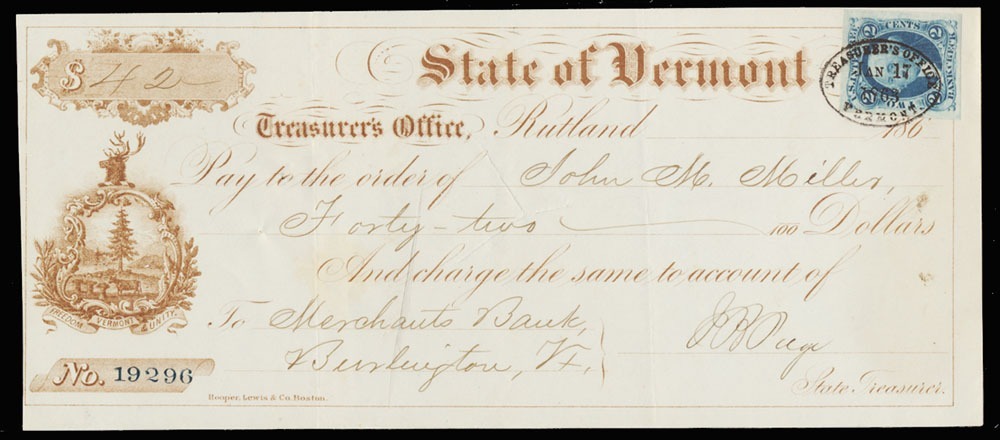 $ 42
State of Vermont
Treasurer's Office, Rutland 186
Pay to the order of John M. Miller,
Forty-two 100 Dollars
And charge the same to account of
To Merchants Bank,
Burlington, Vt.,
J B Page
State Treasurer.
FREEDOM VERMONT & UNITY.
No. 19296
Hooper, Lewis & Co. Boston.
2 CENTS 2
TREASURER'S OFFICE
JAN 17
VERMONT.